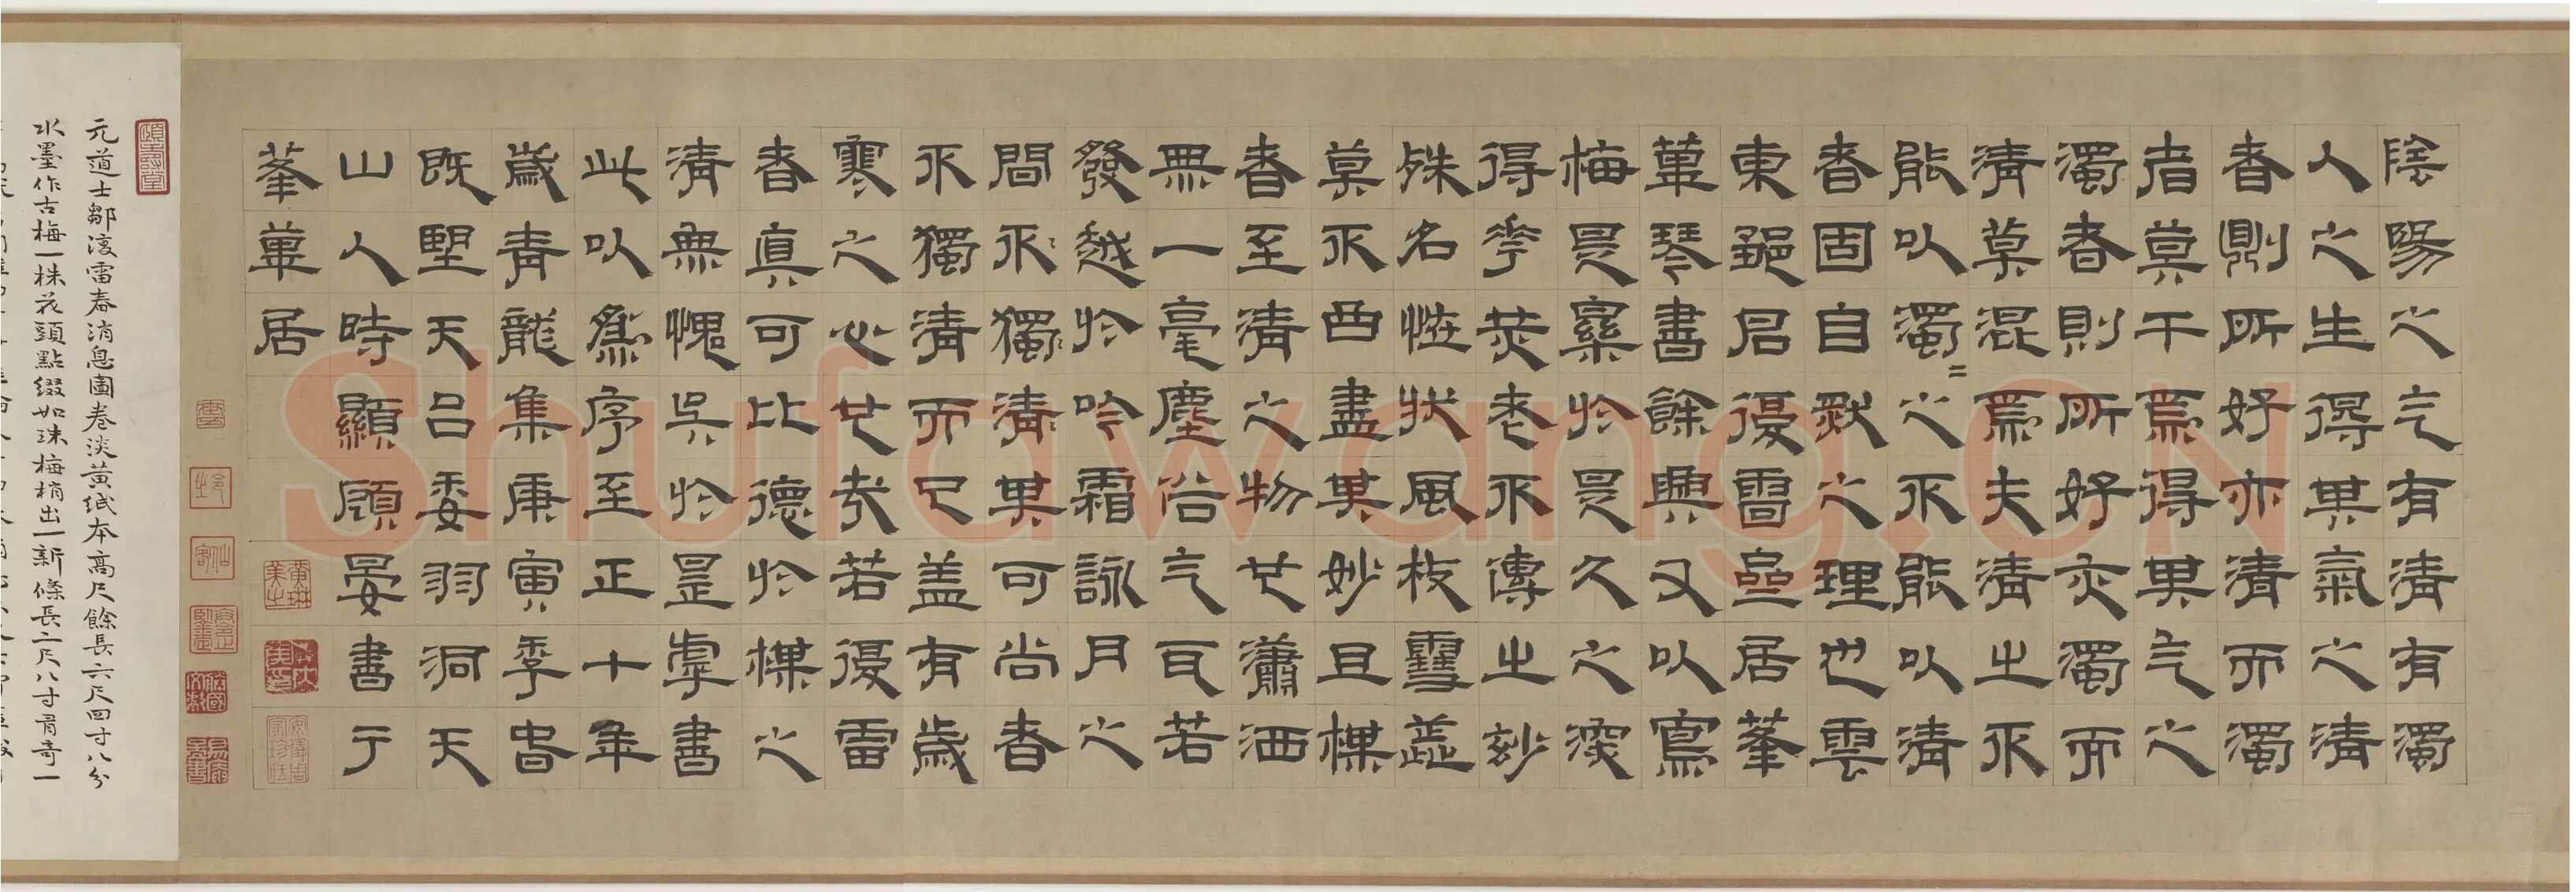 陰陽之气有清有濁
人之生得其氣之清
者則所好亦清而濁
者莫干焉得其气之
濁者則所好亦濁而
清莫混焉夫清之不
能以濁=之不能以清
者固自然之理也雲
東鄒君復雷邑居蓬
蓽琴書餘興又以寫
梅是於是久之深
得華光老不傳之玅
殊名性狀風枝雪蕊
莫不曲盡其妙且楳
香至清之物也瀟洒
無一毫塵俗气宜若
發越於吟霜詠月之
間不獨清其可尚香
不獨清而已蓋有歲
寒之心也哉若復雷
者真可比德於楳之
清無愧矣於是虖書
此以為序至正十年
歲青龍集庚寅季春
既朢天台委羽洞天
山人時顯顧晏書于
蓬蓽居
黃琳美之
安儀周家珍藏
元道士鄒復雷春消息圖卷淡黃紙本高尺餘長六尺四寸八分
水墨作古梅一株花頭點綴如珠梅梢出一新條長二尺八寸有奇一
Shufawang.CN